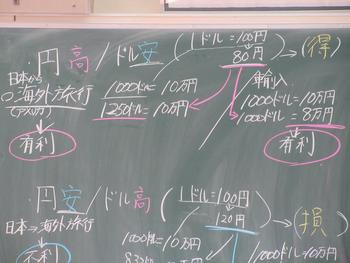 ・円高/ドル安 (1ドル=100円
80円)→(得)
日本から
海外旅行
1000ドル=10万円
1250ドル=10万円
有利
輸入
1000ドル=10万円
1000ドル=8万円
有利
・円安/ドル高 (1ドル=100円
120円)→(損)
日本→海外旅行
1000ドル=10万円
不利